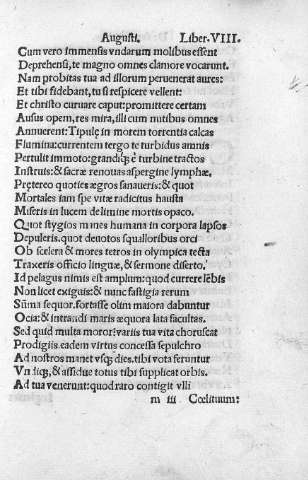 Augusti. Liber. VIII.
Cum vero immensis vndarum molibus essent
Deprehensi, te magno omnes clamore vocarunt.
Nam probitas tua ad illorum peruenerat aures:
Et tibi fidebant, tu si respicere vellent:
Et christo curuare caput: promittere certam
Ausus opem, res mira, illi cum nutibus omnes
Annuerent: Tipulę in morem torrentia calcas
Flumina: currentem tergo te turbidus amnis
Pertulit immoto: grandiq́; è turbine tractos
Instruis: & sacræ renouas aspergine lymphæ.
Prętereo quoties ægros sanaueris: & quot
Mortales iam spe vitæ radicitus hausta
Miseris in lucem de limine mortis opaco.
Quot stygios manes humana in corpora lapsos
Depuleris. quot deuotos squalloribus orci
Ob scelera & mores tetros in olympica tecta
Traxeris officio linguæ, & sermone diserto,
Id pelagus nimis est amplum: quod currere lēbis
Non licet exiguis: & nunc fastigia rerum
Sūma sequor. fortasse olim maiora dabuntur
Ocia: & intrandi maris æquora lata facultas.
Sed quid multa moror: variis tua vita choruscat
Prodigiis. eadem virtus concessa sepulchro
Ad nostros manet vsq; dies. tibi vota feruntur
Vndiq́;, & assidue totus tibi supplicat orbis.
Ad tua venerunt: quod raro contigit vlli
m iii Cœlituum: